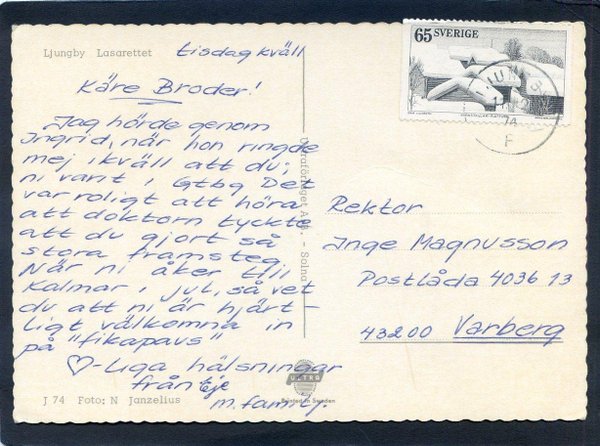 Ljungby Lasarettet
tisdag kväll
Käre Broder!
Jag hörde genom
Ingrid, när hon ringde
mej ikväll att du,
ni varit i Gtbg Det
var roligt att höra
att doktorn tyckte
att du gjort så
stora framsteg
När ni åker till
Kalmar i jul, så vet
du att ni är hjärt-
ligt välkomna in
på "fikapaus"
♡-liga hälsningar
från
m. familj.
J 74 Foto: N Janzelius
Ultraförlaget A.B. - Solna
ULTRA
Printed in Sweden
65 SVERIGE
74
F
Rektor
Inge Magnusson
Postlåda 4036 13
43200 Varberg